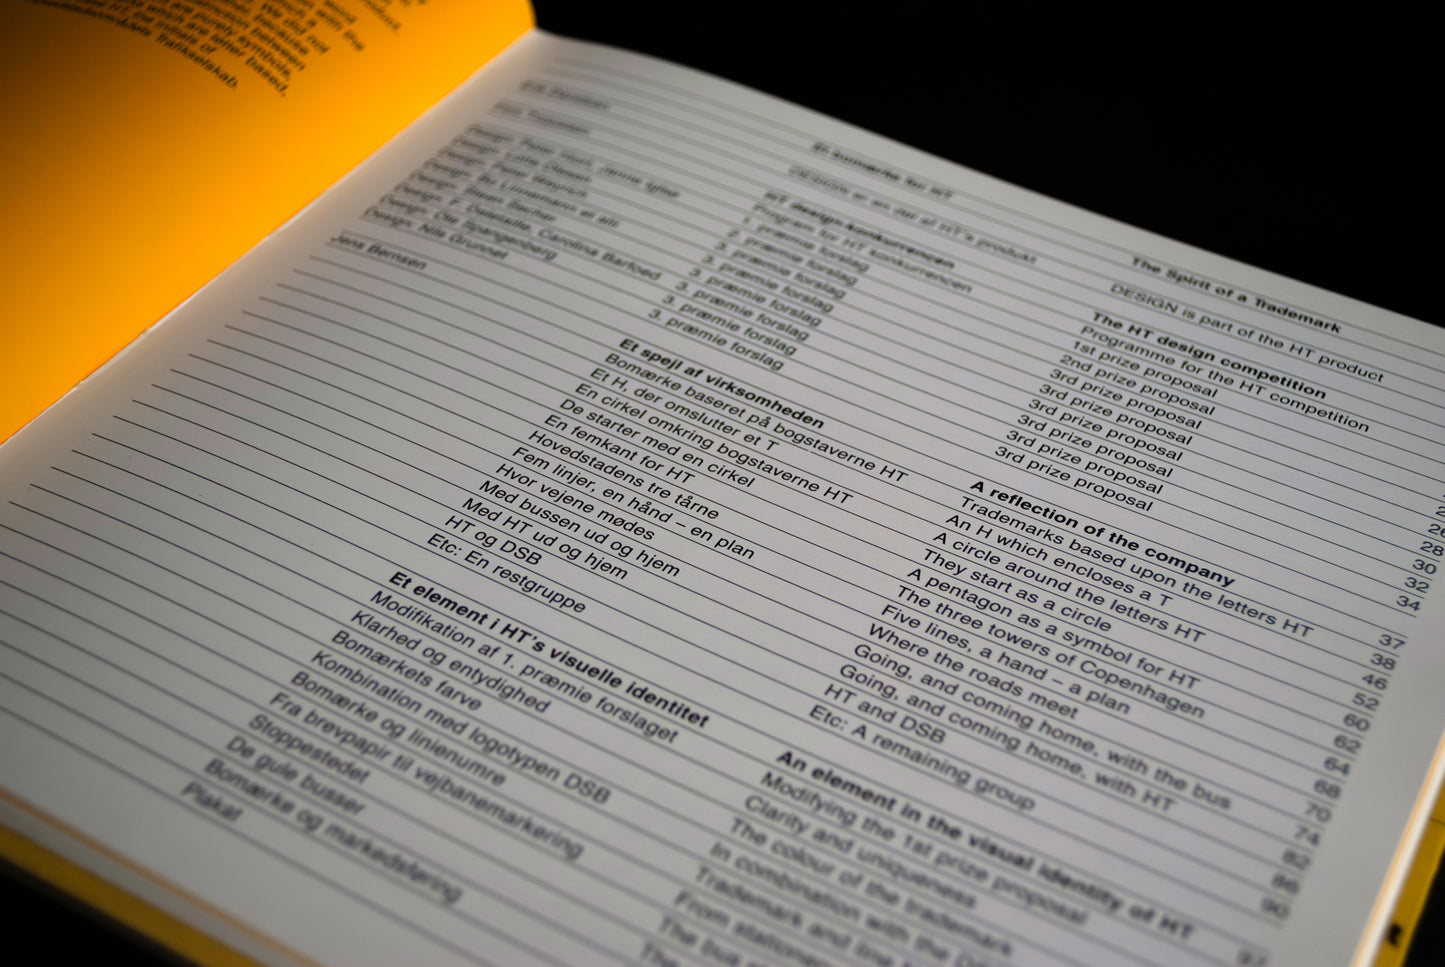 between
purely symbols,
which are letter based,
the initials of
Trafikselskab.
Jens Bernsen
Design: Nils Grunnet
Design: Ole Spangenberg
Et bomærke for HT
DESIGN er en del af HT's produkt
HT design konkurrencen
Program for HT konkurrencen
1. præmie forslag
2. præmie forslag
3. præmie forslag
3. præmie forslag
3. præmie forslag
3. præmie forslag
3. præmie forslag
Et spejl af virksomheden
Bomærke baseret på bogstaverne HT
Et H, der omslutter et T
En cirkel omkring bogstaverne HT
De starter med en cirkel
En femkant for HT
Hovedstadens tre tårne
Fem linjer, en hånd – en plan
Hvor vejene mødes
Med bussen ud og hjem
Med HT ud og hjem
HT og DSB
Etc: En restgruppe
Et element i HT's visuelle identitet
Modifikation af 1. præmie forslaget
Klarhed og entydighed
Bomærkets farve
Kombination med logotypen DSB
Bomærke og linienumre
Fra brevpapir til vejbanemarkering
Stoppestedet
De gule busser
Bomærke og markedsføring
Plakat
The Spirit of a Trademark
DESIGN is part of the HT product
The HT design competition
Programme for the HT competition
1st prize proposal
2nd prize proposal
3rd prize proposal
3rd prize proposal
3rd prize proposal
3rd prize proposal
3rd prize proposal
A reflection of the company
Trademarks based upon the letters HT
An H which encloses a T
A circle around the letters HT
They start as a circle
A pentagon as a symbol for HT
The three towers of Copenhagen
Five lines, a hand – a plan
Where the roads meet
Going, and coming home, with the bus
Going, and coming home, with HT
HT and DSB
Etc: A remaining group
An element in the visual identity of HT
Modifying the 1st prize proposal
Clarity and uniqueness
The colour of the trademark
In combination with the
Trademark and line
From
The bus
28
30
32
34
37
38
46
52
60
62
64
68
70
74
82
86
90
97